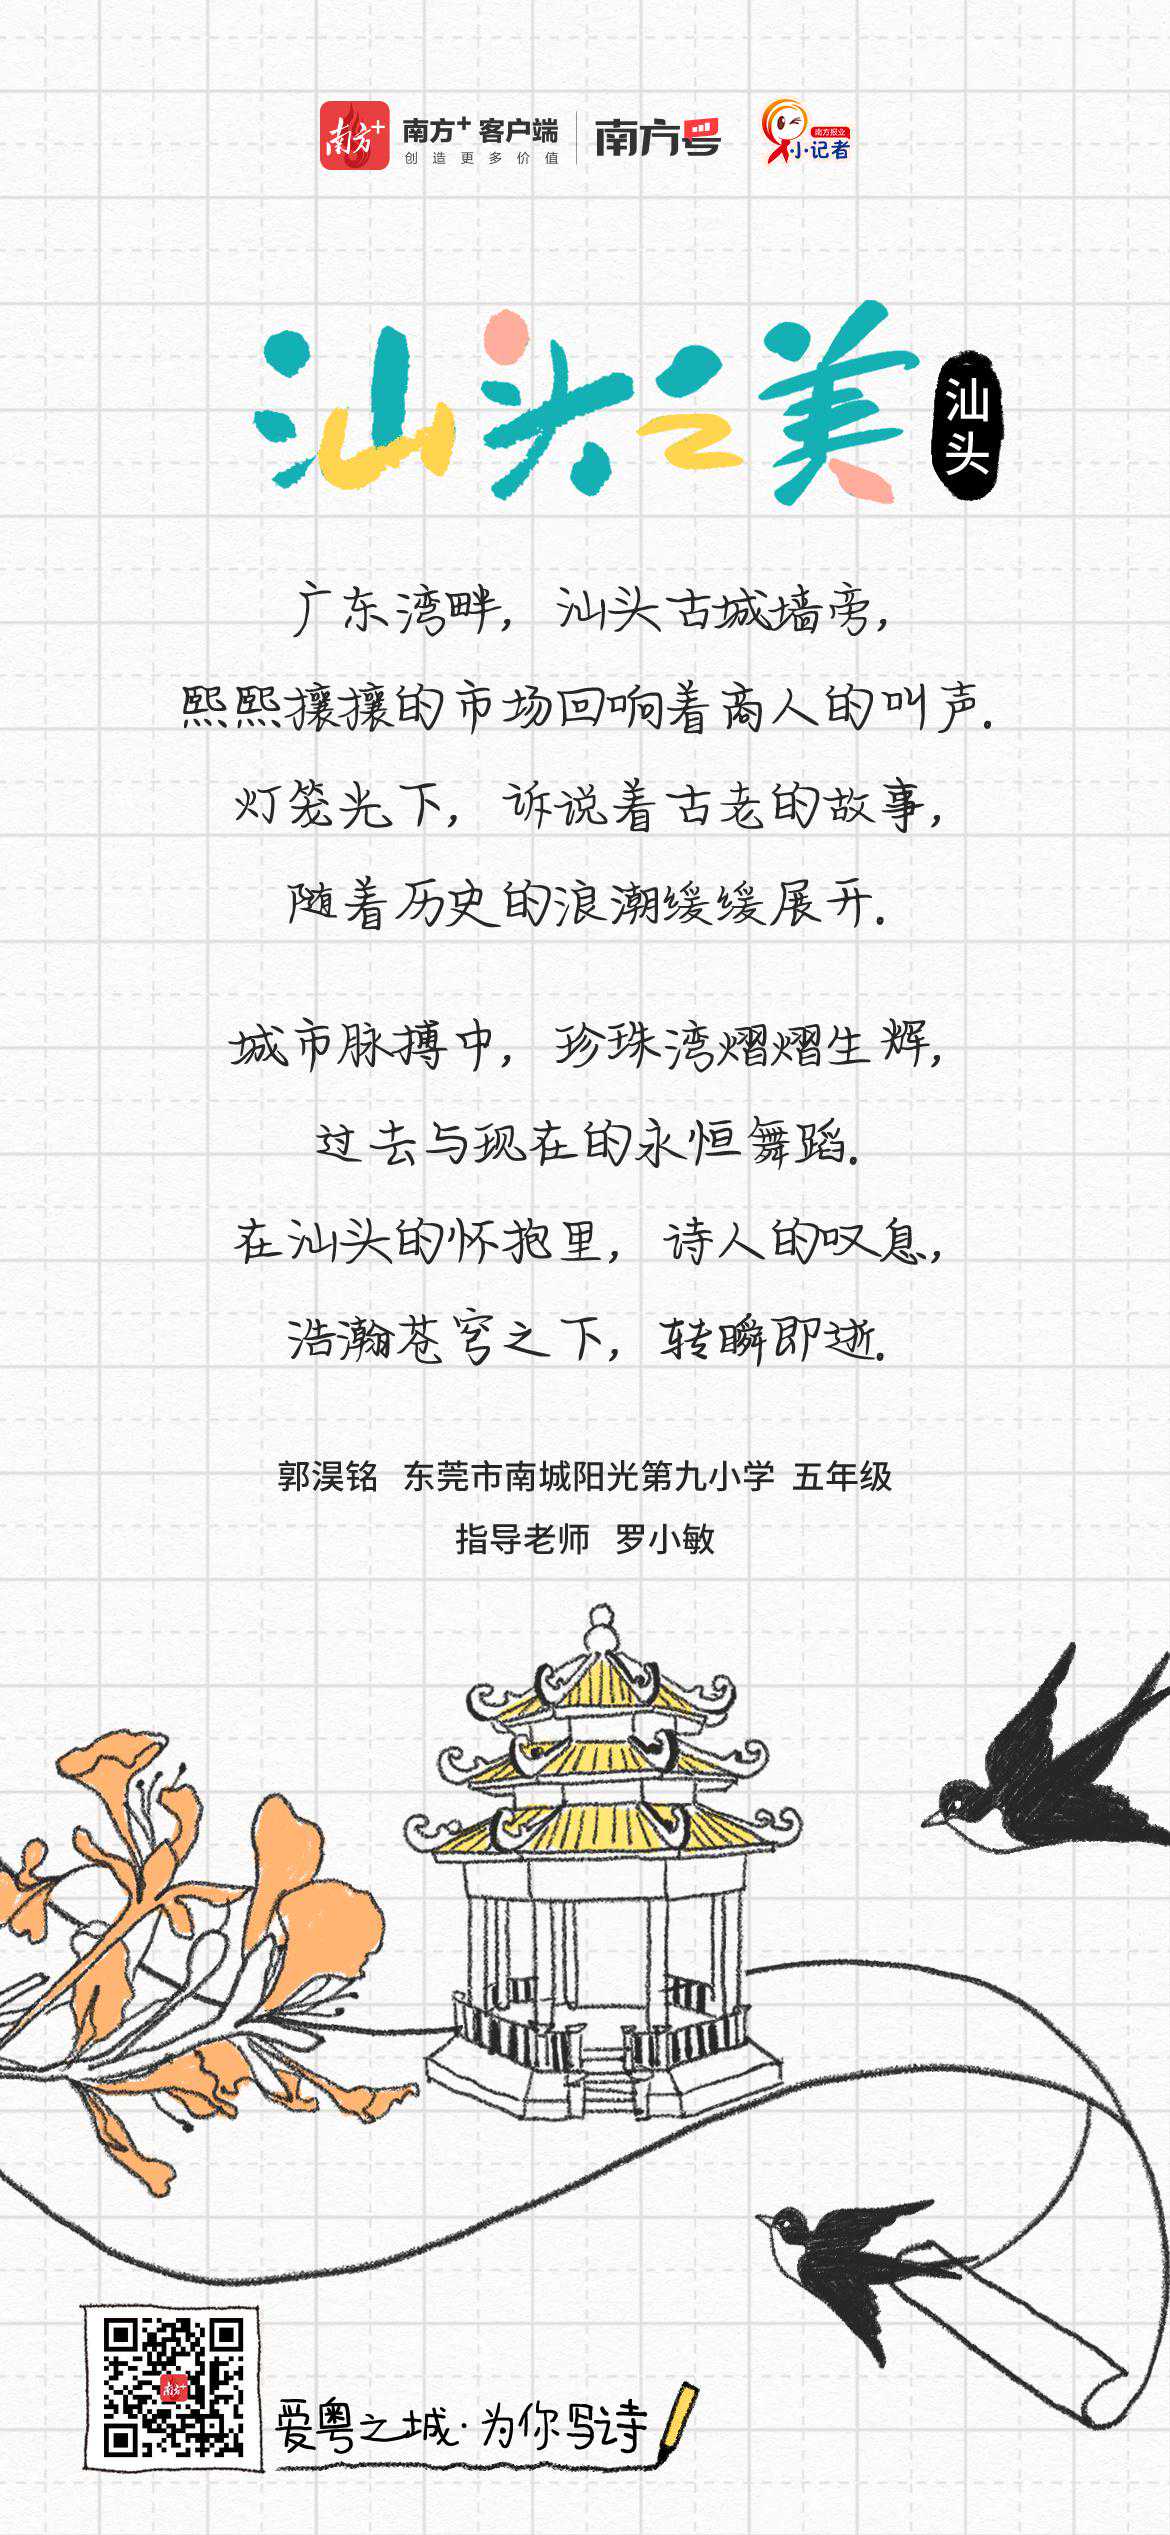 南方+
南方+ 客户端
创造更多价值
南方号
南方报业
小记者
汕头之美
汕头
广东湾畔，汕头古城墙旁，
熙熙攘攘的市场回响着商人的叫声.
灯笼光下，诉说着古老的故事，
随着历史的浪潮缓缓展开.
城市脉搏中，珍珠湾熠熠生辉，
过去与现在的永恒舞蹈.
在汕头的怀抱里，诗人的叹息，
浩瀚苍穹之下，转瞬即逝.
郭淏铭 东莞市南城阳光第九小学 五年级
指导老师 罗小敏
南方+
爱粤之城·为你写诗